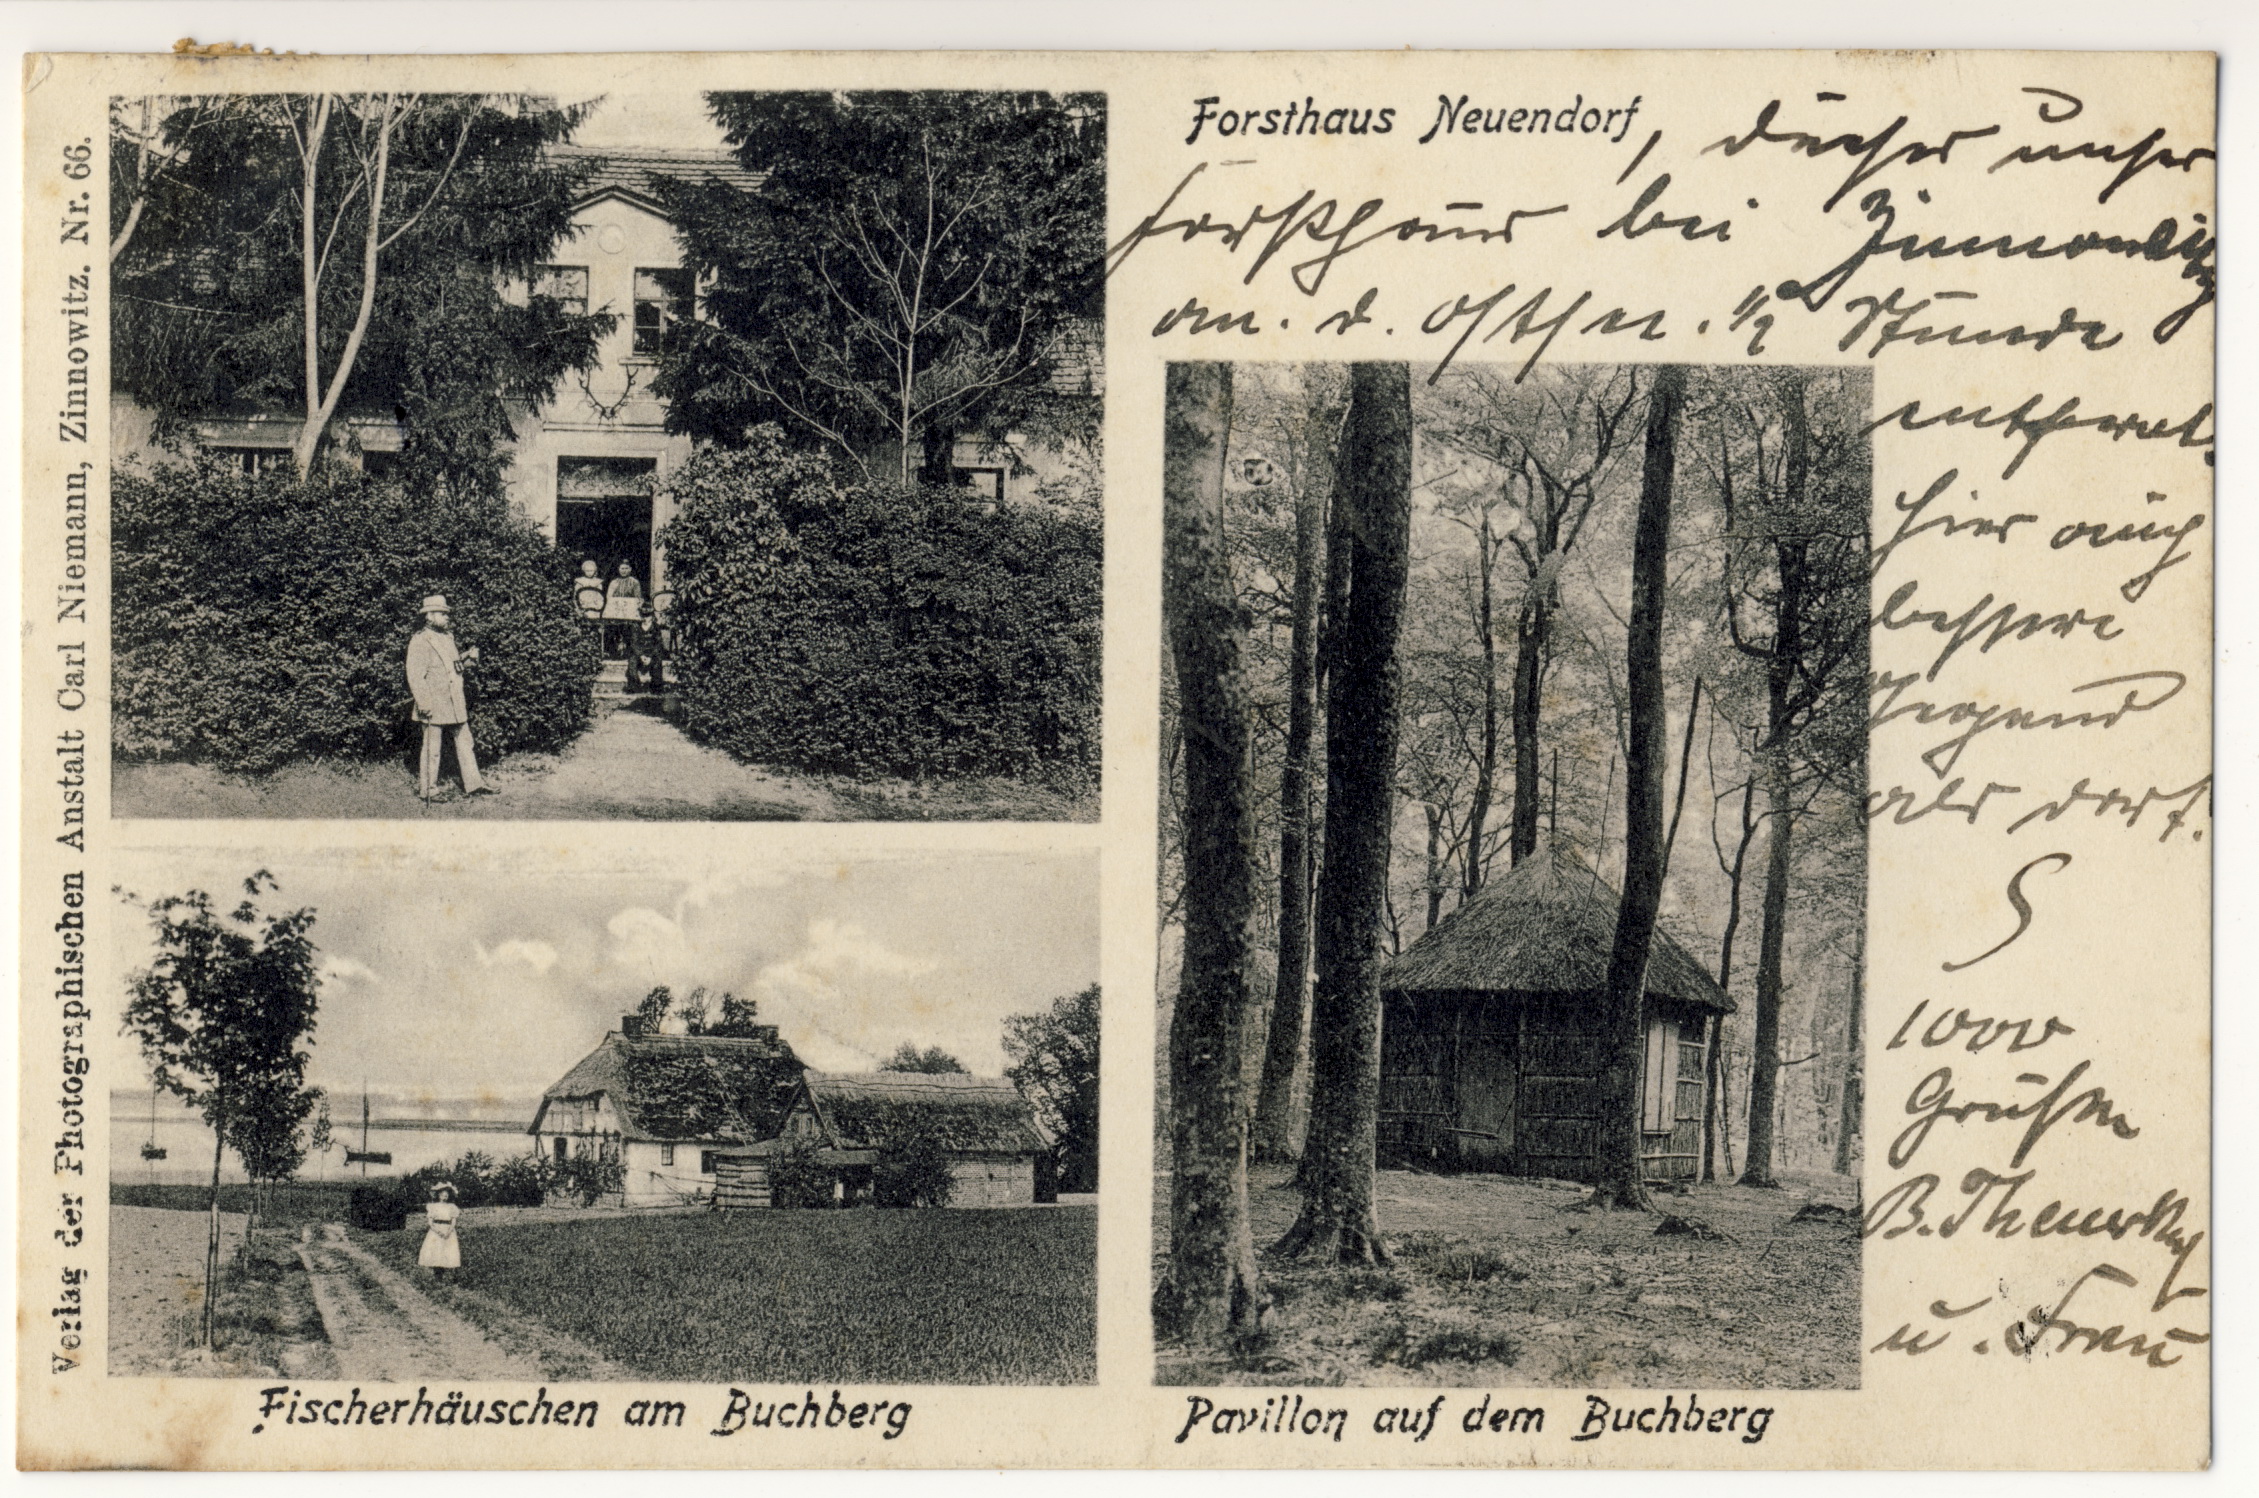 Verlag der Photographischen Anstalt Carl Niemann, Zinnowitz. Nr. 66.
Forsthaus Neuendorf
, unser
Forsthaus bei Zinnowitz
an. d. Ostsee. 1/2 Stunde
entfernt.
hier auch
bessere
Gegend
als dort.
1000
Grüße
B.
u. Frau
Fischerhäuschen am Buchberg
Pavillon auf dem Buchberg